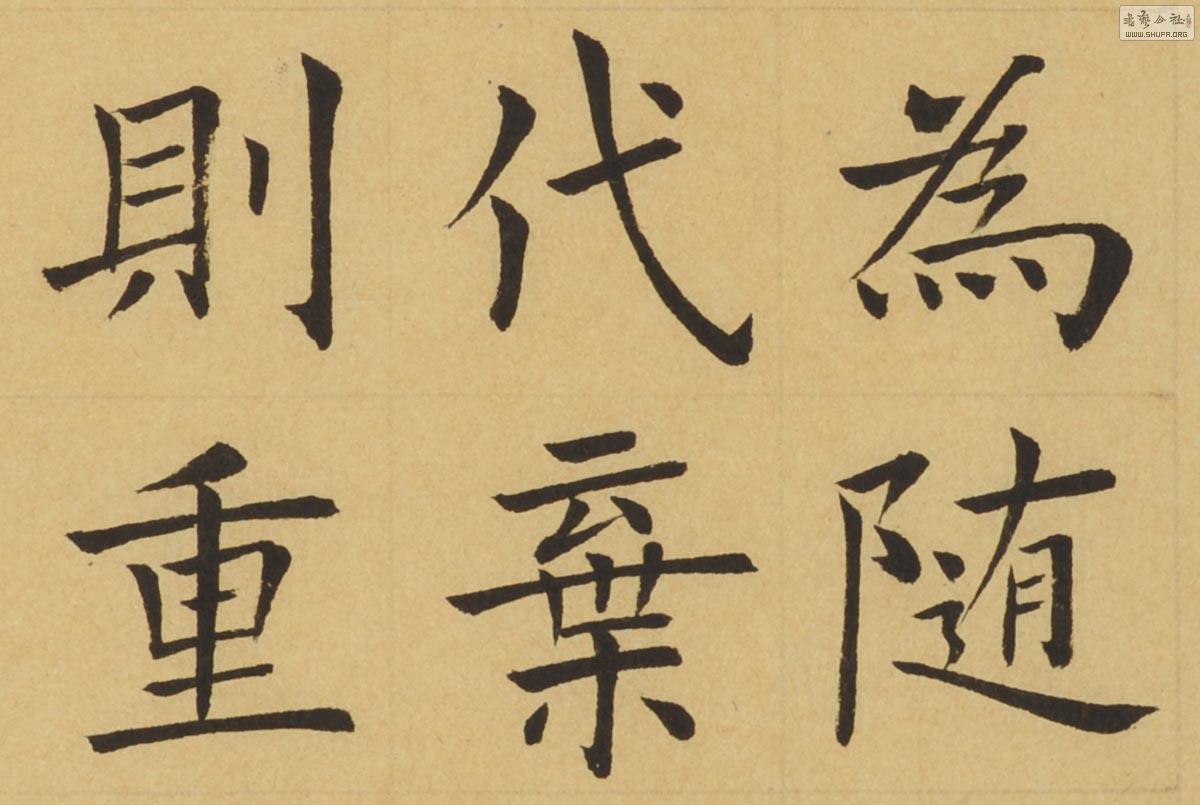 為随
代棄
則重
書藝公社
WWW.SHUFA.ORG